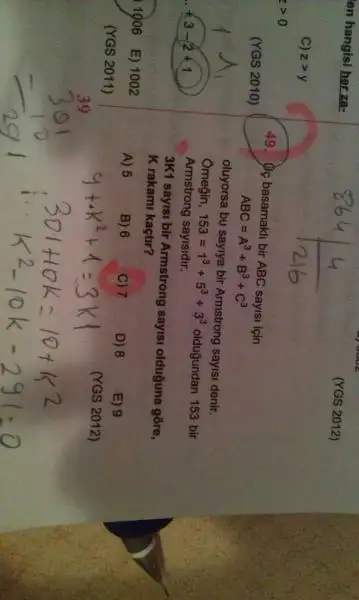 en hangisi her za-
C) z > y
z > 0
(YGS 2010)
.. + 3 - 2 + 1
1006 E) 1002
(YGS 2011)
39
864 4
216
(YGS 2012)
49. Üç basamaklı bir ABC sayısı için
ABC = A³ + B³ + C³
oluyorsa bu sayıya bir Armstrong sayısı denir.
Örneğin, 153 = 1³ + 5³ + 3³ olduğundan 153 bir
Armstrong sayısıdır.
3K1 sayısı bir Armstrong sayısı olduğuna göre,
K rakamı kaçtır?
A) 5 B) 6 C) 7 D) 8 E) 9
(YGS 2012)
9+K²+1=3K1
301+10K=10+K²
K²-10K-291=0
301
10
291